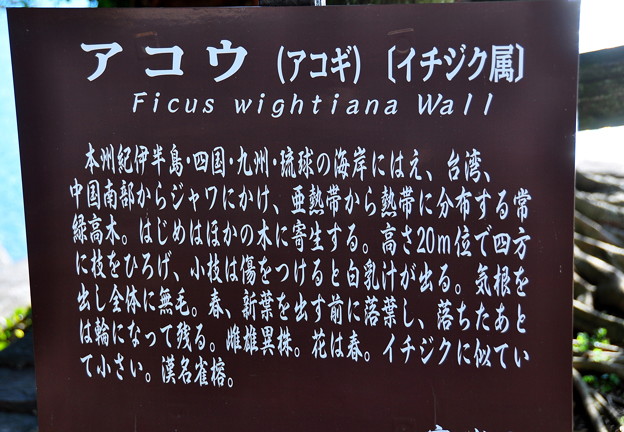 アコウ (アコギ) 〔イチジク属〕
Ficus wightiana Wall
本州紀伊半島・四国・九州・琉球の海岸にはえ、台湾、
中国南部からジャワにかけ、亜熱帯から熱帯に分布する常
緑高木。はじめはほかの木に寄生する。高さ20m位で四方
に枝をひろげ、小枝は傷をつけると白乳汁が出る。気根を
出し全体に無毛。春、新葉を出す前に落葉し、落ちたあと
は輪になって残る。雌雄異株。花は春。イチジクに似てい
て小さい。漢名雀榕。